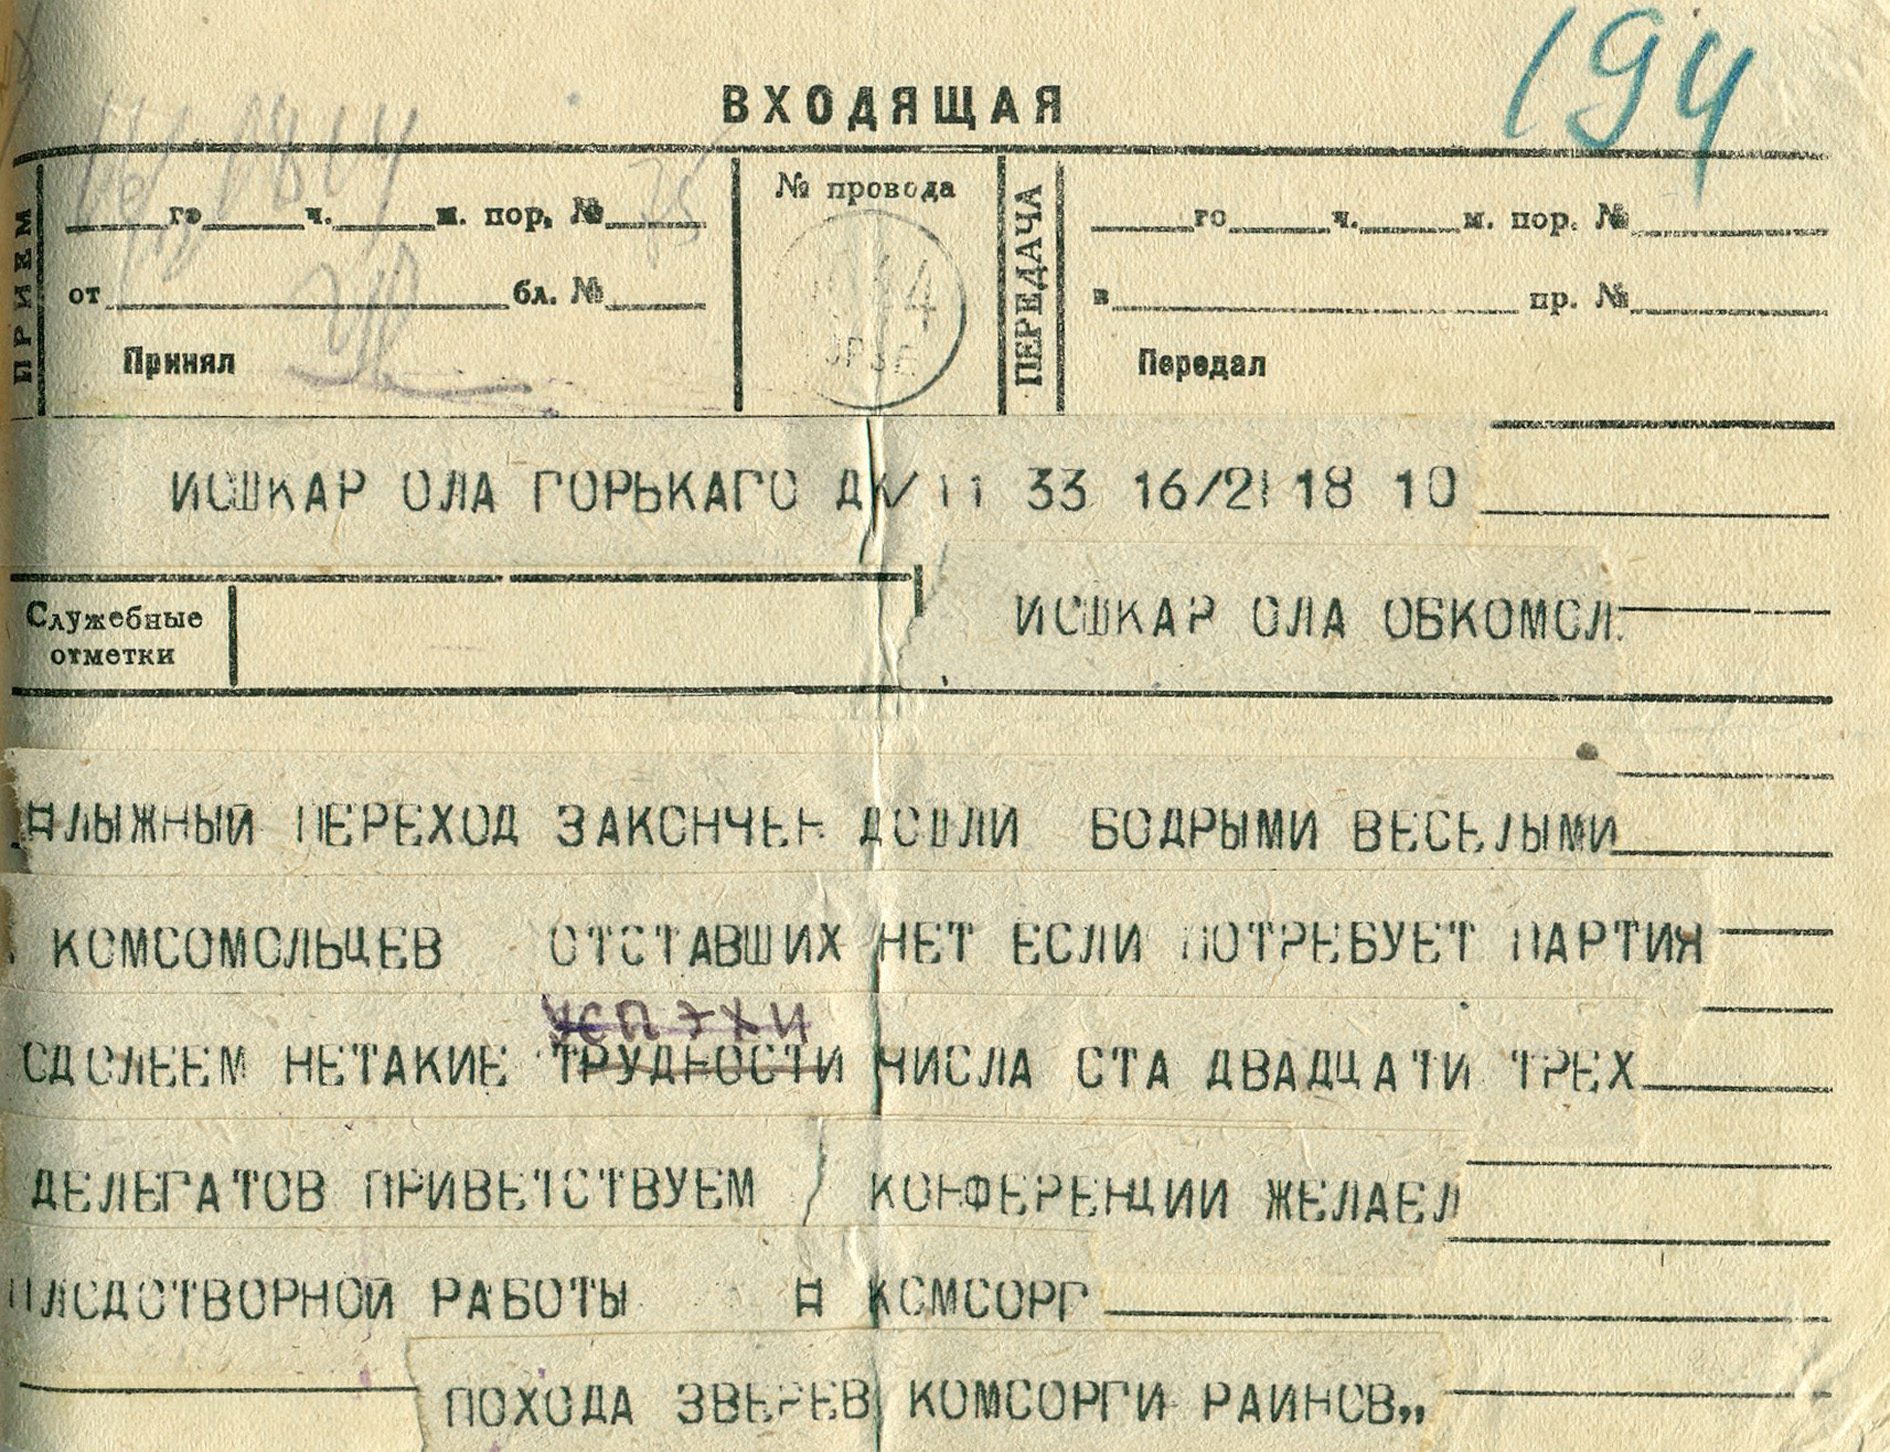 194
ВХОДЯЩАЯ
ПРИЕМ
го ч. м. пор. №
от бл. №
Принял
№ провода
ПЕРЕДАЧА
го ч. м. пор. №
в пр. №
Передал
ИОШКАР ОЛА ГОРЬКАГО 11 33 16/2 18 10
Служебные
отметки
ИОШКАР ОЛА ОБКОМОЛ
ЛЫЖНЫЙ ПЕРЕХОД ЗАКОНЧЕН ДОШЛИ БОДРЫМИ ВЕСЕЛЫМИ
КОМСОМОЛЬЦЕВ ОТСТАВШИХ НЕТ ЕСЛИ ПОТРЕБУЕТ ПАРТИЯ
УСПЭХИ
СДОЛЕЕМ НЕТАКИЕ ТРУДНОСТИ ЧИСЛА СТА ДВАДЦАТИ ТРЕХ
ДЕЛЕГАТОВ ПРИВЕТСТВУЕМ КОНФЕРЕНЦИИ ЖЕЛАЕМ
ПЛОДОТВОРНОЙ РАБОТЫ КОМСОРГ
ПОХОДА ЗВЕРЕВ КОМСОРГИ РАИНОВ,,